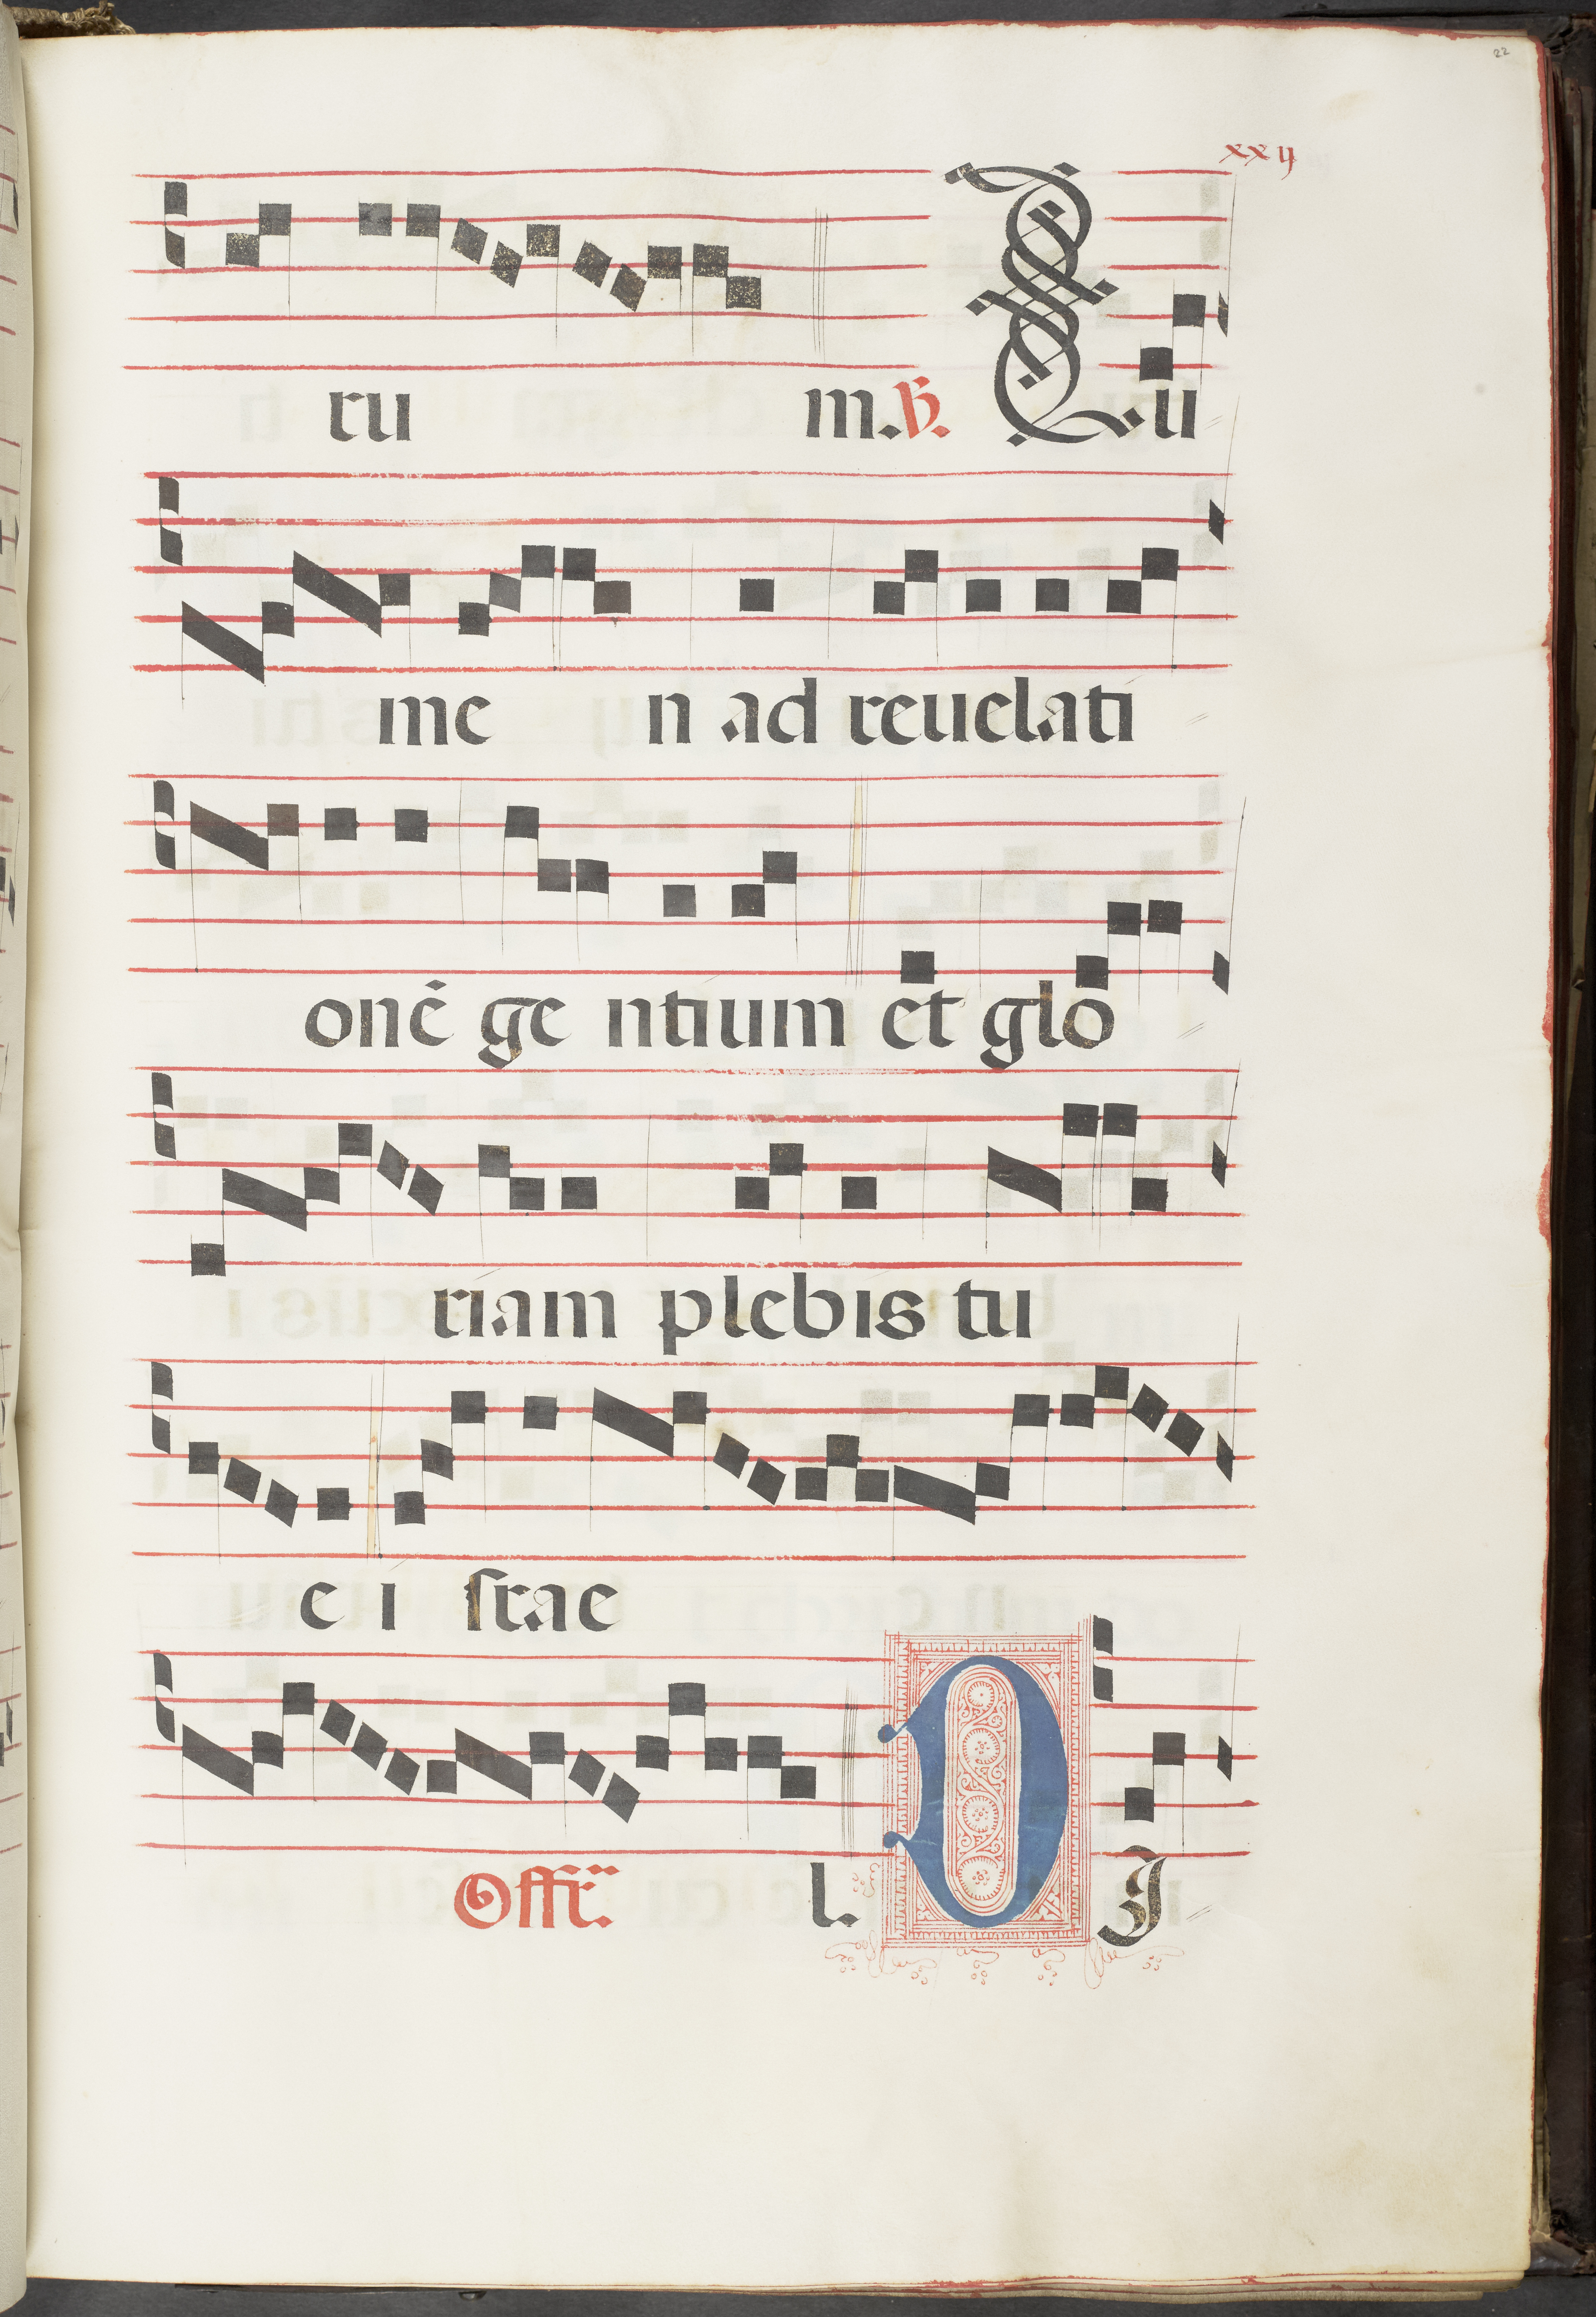 22
xxij
ru m. ℣. Lu
me n ad reuelati
onē ge ntium et glo
riam plebis tu
e i srae
Offr̃. l. D I